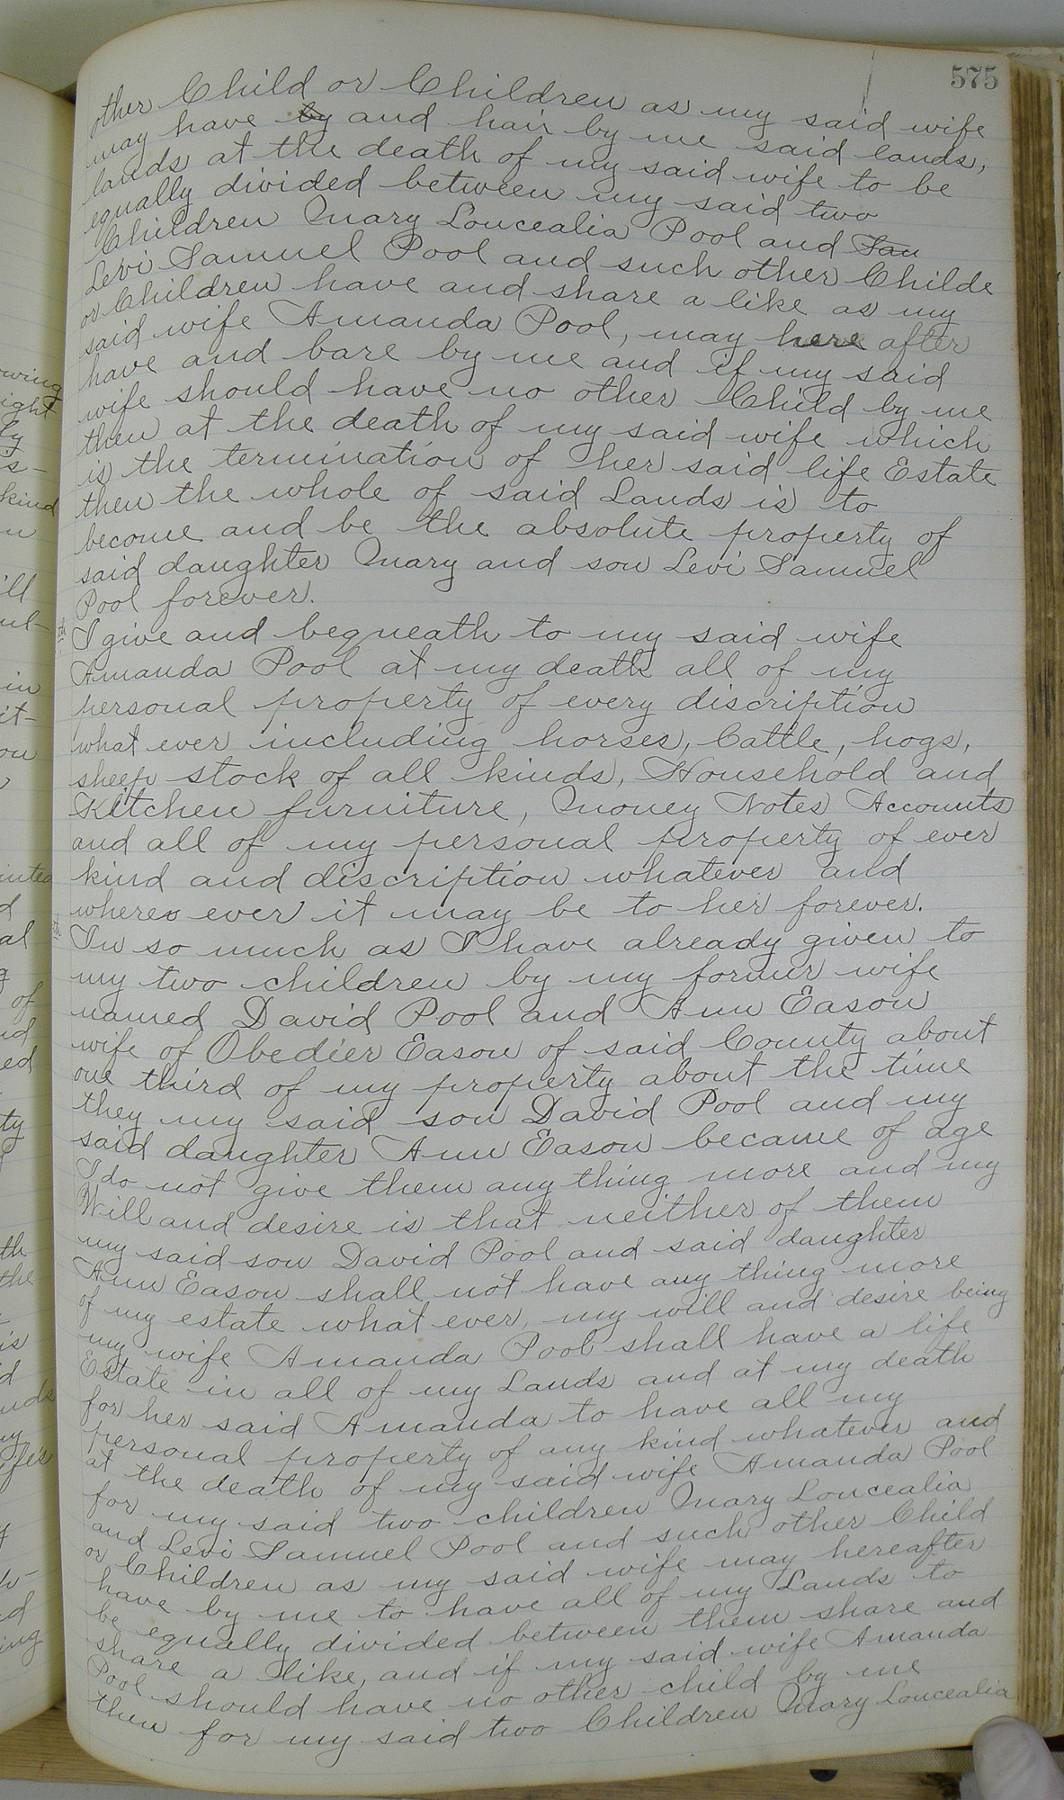 575
other Child or Children as my said wife
may have by and hair by me said lands,
lands at the death of my said wife to be
equally divided between my said two
Children Mary Loucealia Pool and Sau
Levi Samuel Pool and such other Childe
or Children have and share a like as my
said wife Amanda Pool, may here after
have and bare by me and if my said
wife should have no other Child by me
then at the death of my said wife which
is the termination of her said life Estate
then the whole of said Lands is to
become and be the absolute property of
said daughter Mary and son Levi Samuel
Pool forever.
I give and begueath to my said wife
Amanda Pool at my death all of my
personal property of every discription
what ever including horses, Cattle, hogs,
sheep stock of all kinds, Household and
Kitchen furniture, Money Notes Accounts
and all of my personal property of ever
kind and discription whatever and
where ever it may be to her forever.
In so much as I have already given to
my two children by my former wife
named David Pool and Ann Eason
wife of Obedier Eason of said County about
one third of my property about the time
they my said son David Pool and my
said daughter Ann Eason became of age
I do not give them any thing more and my
Will and desire is that neither of them
my said son David Pool and said daughter
Ann Eason shall not have any thing more
of my estate what ever, my will and desire being
my wife Amanda Pool shall have a life
Estate in all of my Lands and at my death
for her said Amanda to have all my
personal property of any kind whatever and
at the death of my said wife Amanda Pool
for my said two children Mary Loucealia
and Levi Samuel Pool and such other Child
or Children as my said wife may hereafter
have by me to have all of my Lands to
be equally divided between them share and
share a like, and if my said wife Amanda
Pool should have no other child by me
then for my said two Children Mary Loucealia